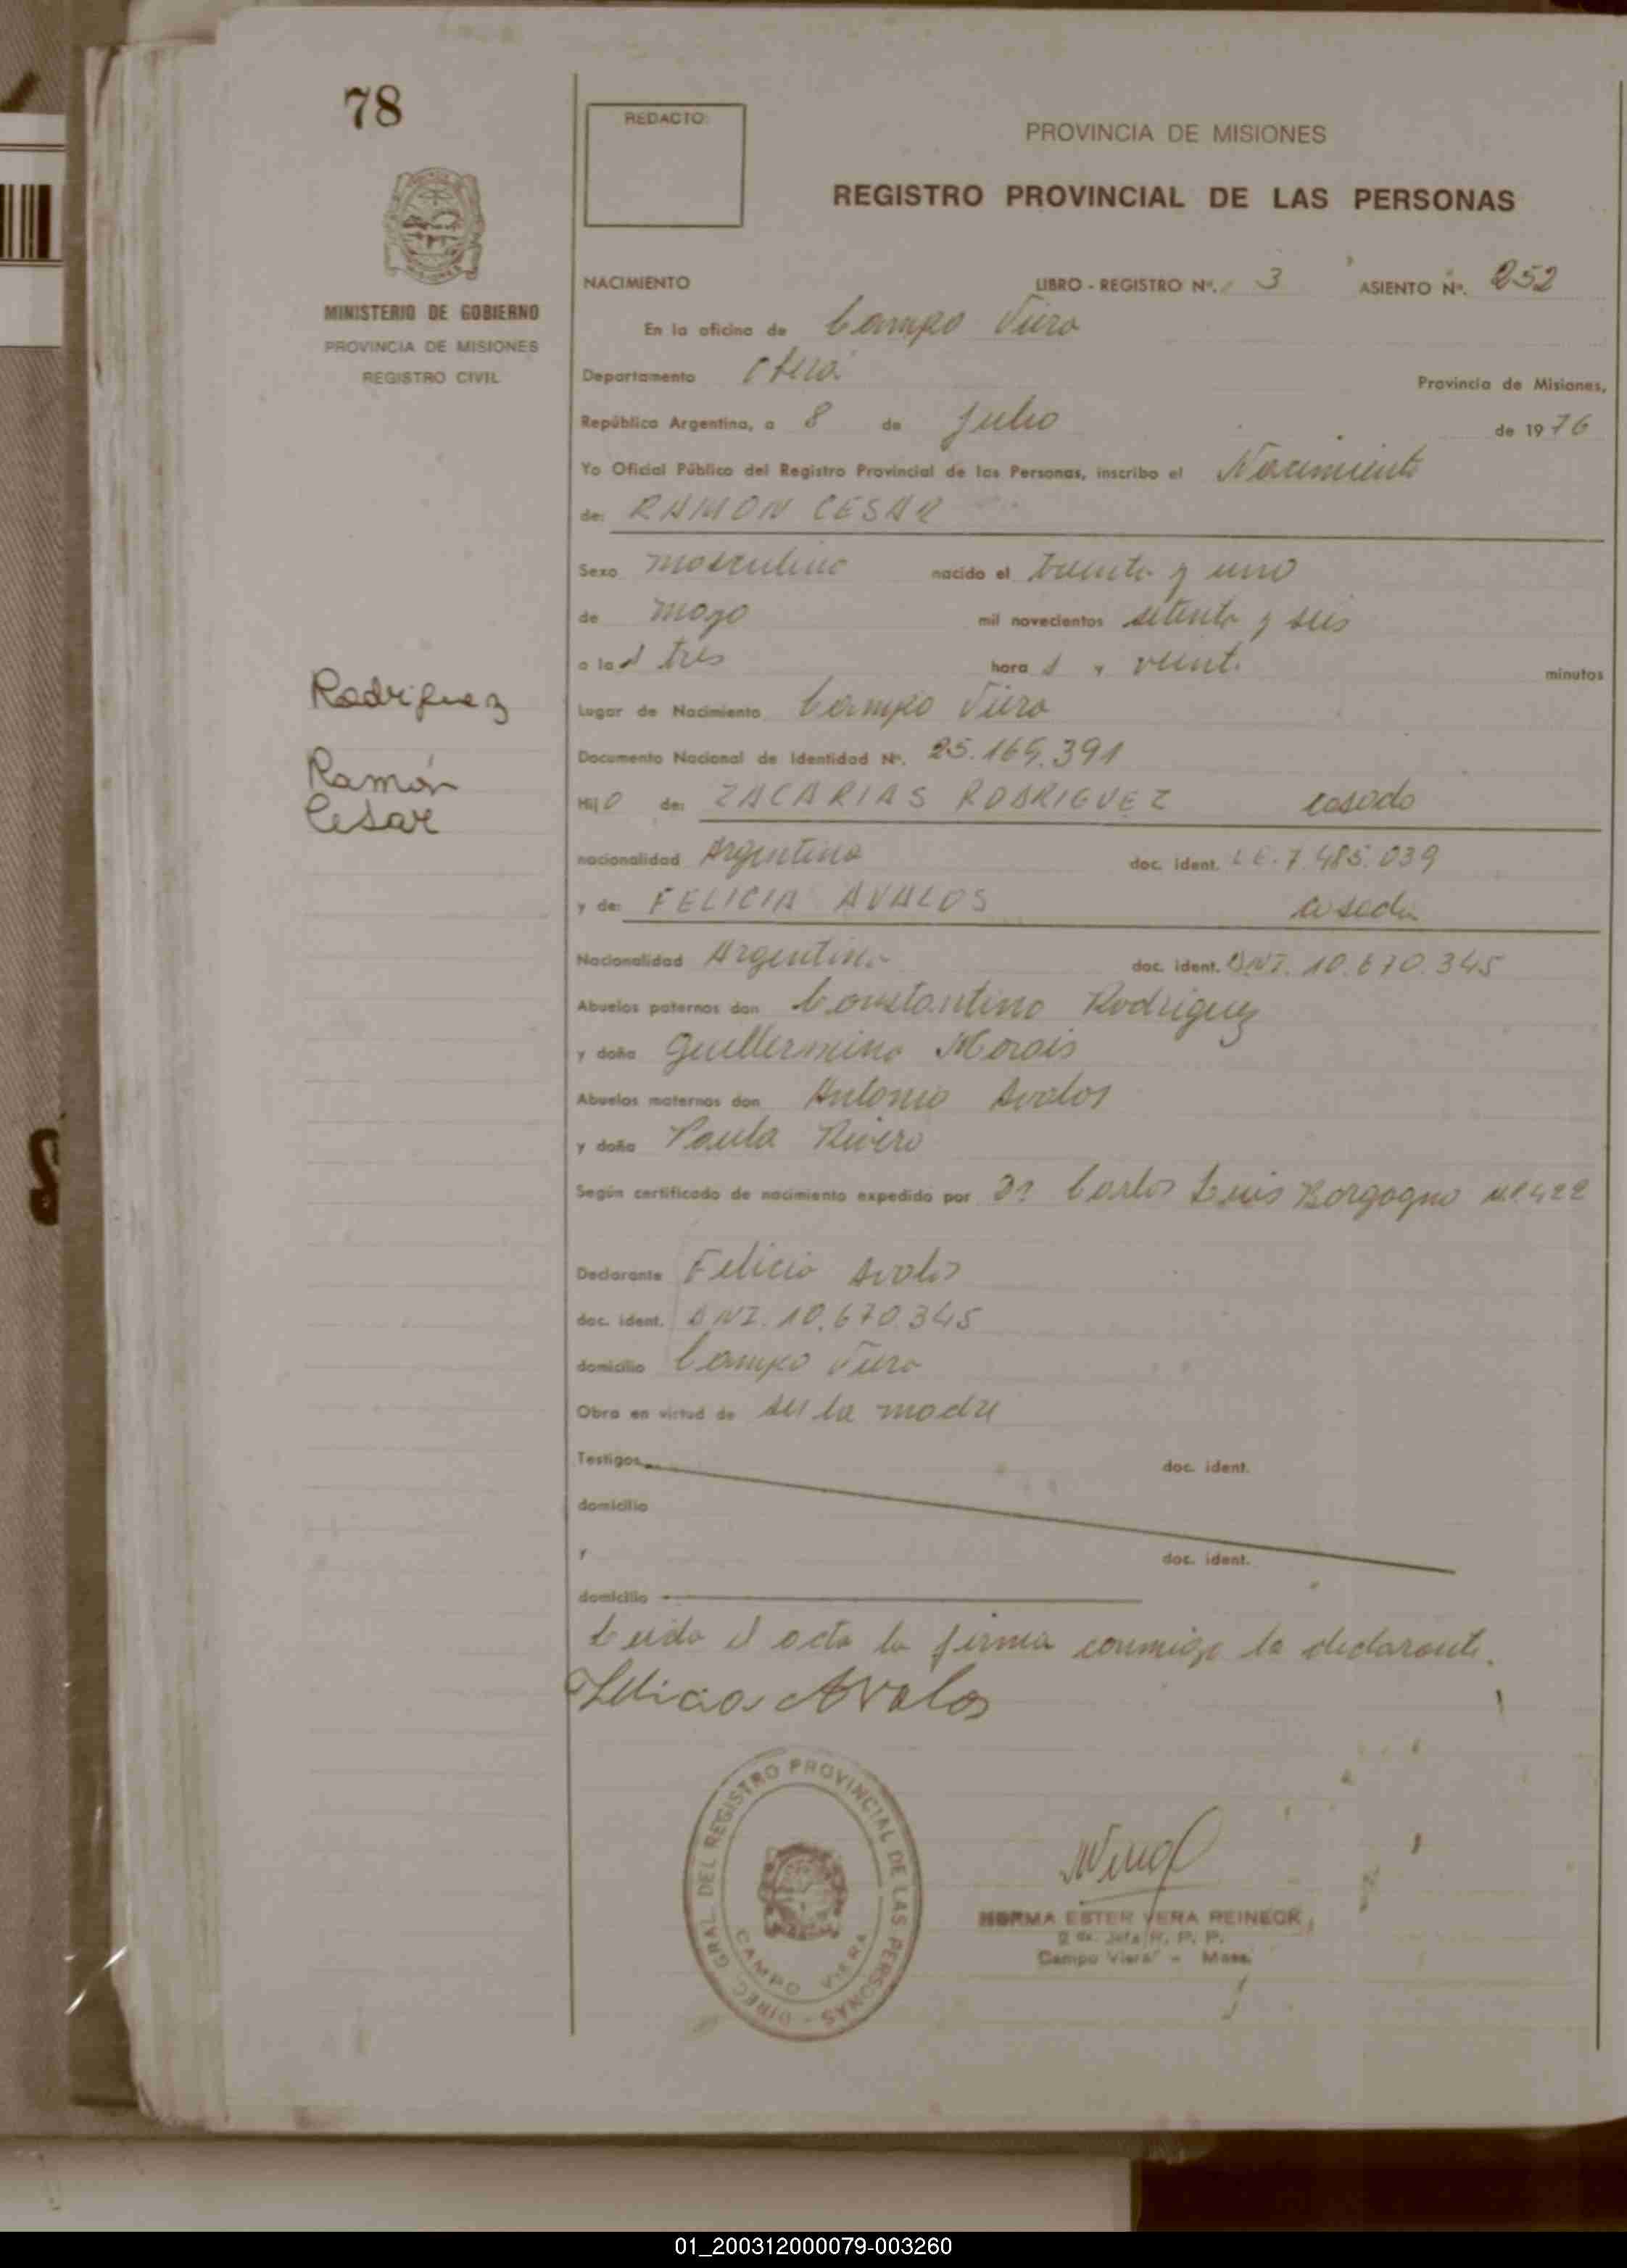 78
REDACTO:
PROVINCIA DE MISIONES
REGISTRO PROVINCIAL DE LAS PERSONAS
MINISTERIO DE GOBIERNO
PROVINCIA DE MISIONES
REGISTRO CIVIL
NACIMIENTO LIBRO - REGISTRO Nº. 3 ASIENTO Nº. 252
En la oficina de Campo Viera
Departamento Oberá Provincia de Misiones,
República Argentina, a 8 de Julio de 1976
Yo Oficial Público del Registro Provincial de las Personas, inscribo el Nacimiento
de: RAMON CESAR
Sexo masculino nacido el treinta y uno
de mayo mil novecientos setenta y seis
a las tres horas y veinte minutos
Rodriguez
Ramón
Cesar
Lugar de Nacimiento Campo Viera
Documento Nacional de Identidad Nº. 25.165.391
Hijo de: ZACARIAS RODRIGUEZ casado
nacionalidad Argentina doc. ident. LE. 7.485.039
y de: FELICIA AVALOS casada
Nacionalidad Argentina doc. ident. DNI. 10.670.345
Abuelos paternos don Constantino Rodriguez
y doña Guillermina Morais
Abuelos maternos don Antonio Avalos
y doña Paula Rivero
Según certificado de nacimiento expedido por Dr Carlos Luis Borgogno
Declarante Felicia Avalos
doc. ident. DNI. 10.670.345
domicilio Campo Viera
Obra en virtud de ser la madre
Testigos doc. ident.
domicilio
y doc. ident.
domicilio
Leida el acta la firma conmigo la declarante.
Felicia Avalos
DIREC. GRAL. DEL REGISTRO PROVINCIAL DE LAS PERSONAS
CAMPO VIERA
NORMA ESTER VERA REINECK
Jefa R. P. P.
Campo Viera - Mnes.
01_200312000079-003260